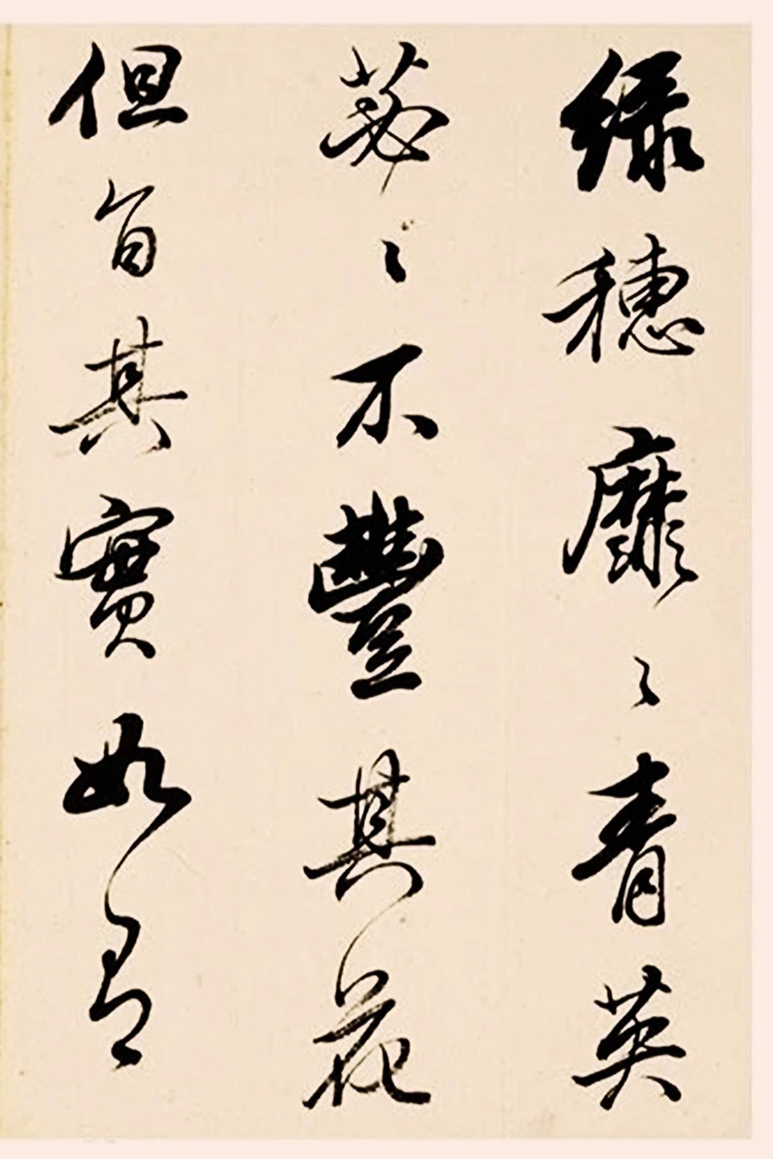 绿穗靡〻青英
苾〻不豐其花
但旨其實如君